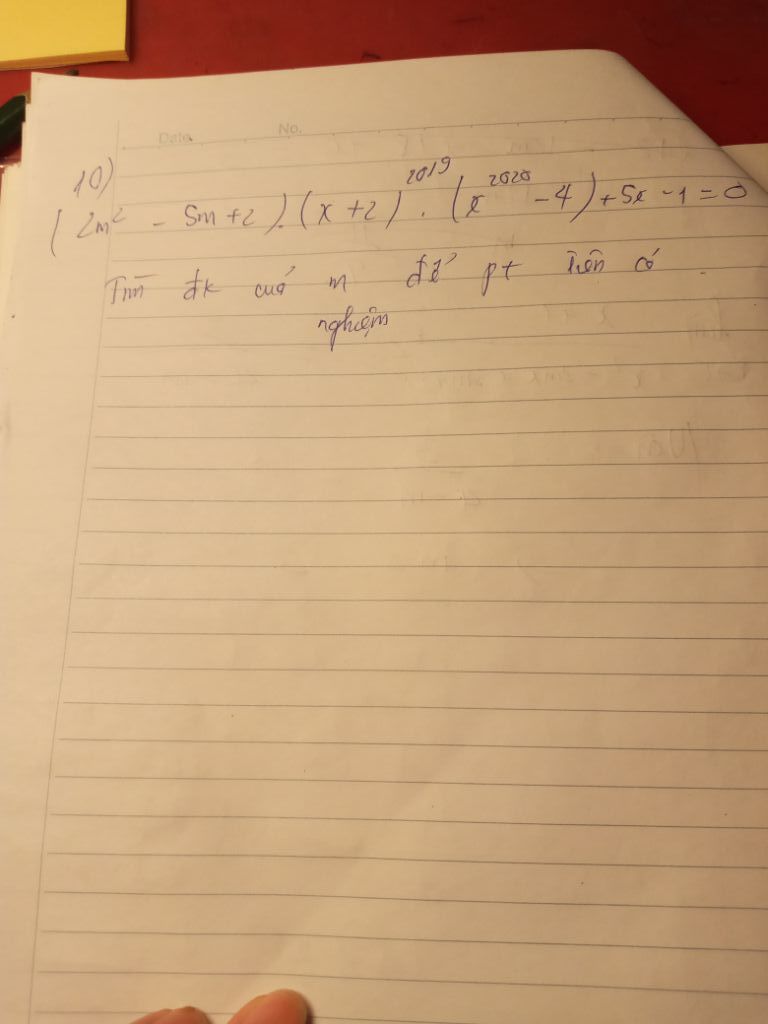 Date. No.
10)
(2m² - 5m + 2).(x + 2)²⁰¹⁹ . (x²⁰²⁰ - 4) + 5x - 1 = 0
Tìm đk của m để pt trên có
nghiệm